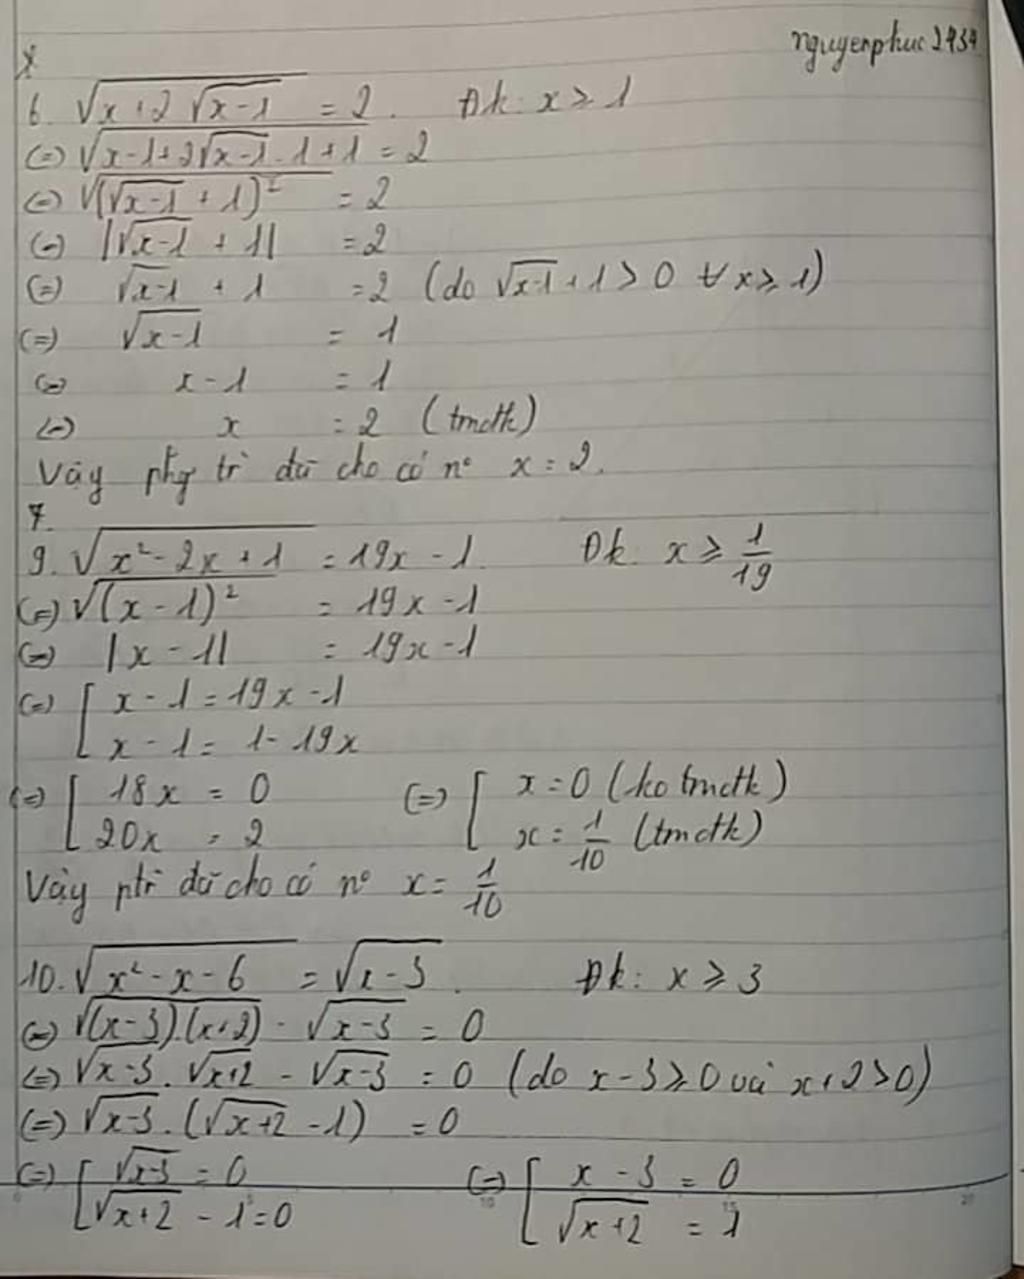 nguyenphuc2434
6. √(x+2√(x-1)) = 2. Đk: x ≥ 1
(=) √(x-1+2√(x-1).1+1) = 2
(=) √((√(x-1) + 1)²) = 2
(=) |√(x-1) + 1| = 2
(=) √(x-1) + 1 = 2 (do √(x-1)+1 > 0 ∀ x ≥ 1)
(=) √(x-1) = 1
(=) x-1 = 1
(=) x = 2 (tmđk)
Vậy phg trì đã cho có n° x = 2.
7.
9. √(x²-2x+1) = 19x-1. Đk: x ≥ 1/19
(=) √((x-1)²) = 19x-1
(=) |x-1| = 19x-1
(=) [ x-1 = 19x-1
x-1 = 1-19x
(=) [ 18x = 0 (=) [ x=0 (ko tmđk)
20x = 2 x = 1/10 (tmđk)
Vậy ptrì đã cho có n° x = 1/10
10. √(x²-x-6) = √(x-3). Đk: x ≥ 3
(=) √((x-3).(x+2)) - √(x-3) = 0
(=) √(x-3).√(x+2) - √(x-3) = 0 (do x-3 ≥ 0 và x+2 > 0)
(=) √(x-3).(√(x+2) - 1) = 0
(=) [ √(x-3) = 0 (=) [ x-3 = 0
√(x+2) - 1 = 0 √(x+2) = 1